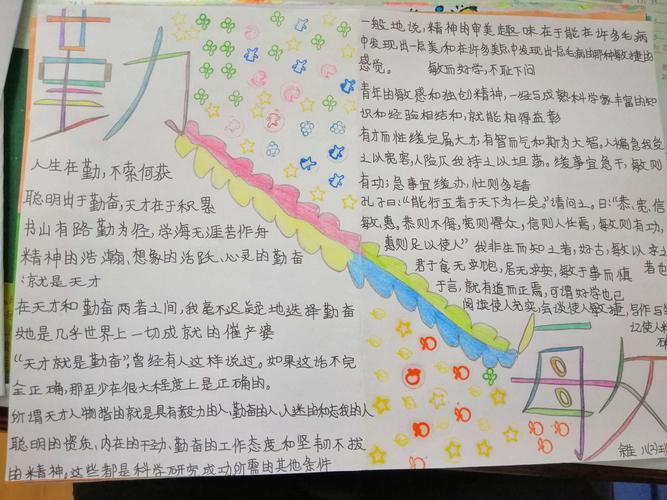 勤
人生在勤，不索何获
聪明出于勤奋，天才在于积累
书山有路勤为径，学海无涯苦作舟
精神的浩瀚、想象的活跃、心灵的勤奋
：就是天才
在天才和勤奋两者之间，我毫不迟疑地选择勤奋
她是几乎世界上一切成就的催产婆
“天才就是勤奋”，曾经有人这样说过。如果这话不完
全正确，那至少在很大程度上是正确的。
所谓天才人物指的就是具有毅力的人、勤奋的人、入迷的和忘我的人
聪明的资质、内在的干劲、勤奋的工作态度和坚韧不拔
的精神。这些都是科学研究成功所需的其他条件
一般地说，精神的审美趣味在于能在许多毛病
中发现出一点美和在许多美点中发现出一点毛病的那种敏捷的
感觉。 敏而好学，不耻下问
青年的敏感和独创精神，一经与成熟科学家丰富的知
识和经验相结和，就能相得益彰
有才而性缓定属大才有智而气和斯为大智，人褊急我受
之以宽宏，人险仄我待之以坦荡。缓事宜急干，敏则
有功；急事宜缓办，忙则多错
孔子曰：“能行五者于天下为仁矣。”请问之。曰：“恭，宽，信
敏，惠。恭则不侮，宽则得众，信则人任焉，敏则有功，
惠则足以使人” 我非生而知之者，好古，敏以求之
君子食无求饱，居无求安，敏于事而慎 者也
于言，就有道而正焉，可谓好学也已
阅读使人充实，会谈使人敏捷，写作与笔
记使人精
敏